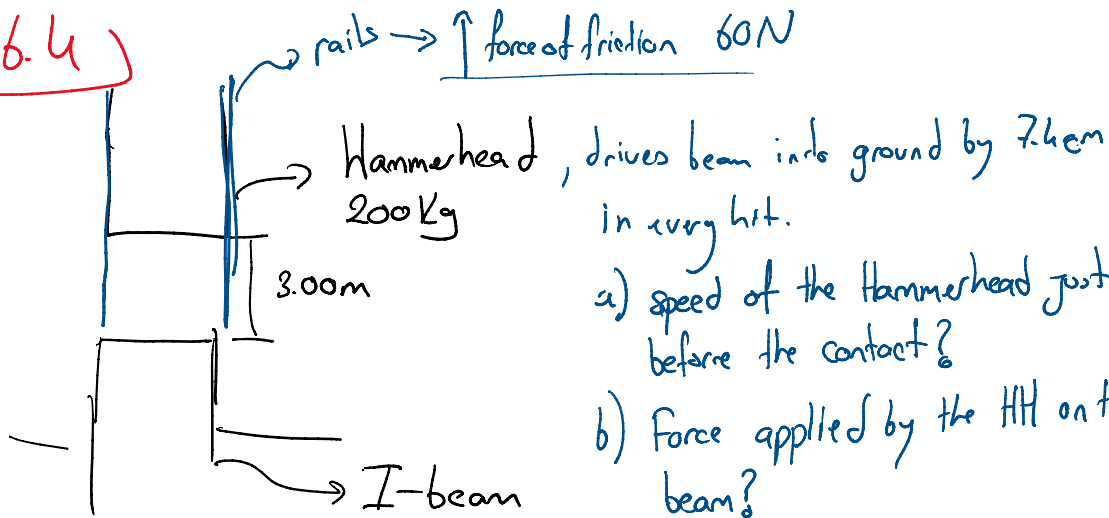 6.4
rails → ↑ force of friction 60N
Hammerhead, drives beam into ground by 7.4cm
200kg
in every hit.
3.00m
a) speed of the Hammerhead just
before the contact?
b) Force applied by the HH on t
beam?
I-beam